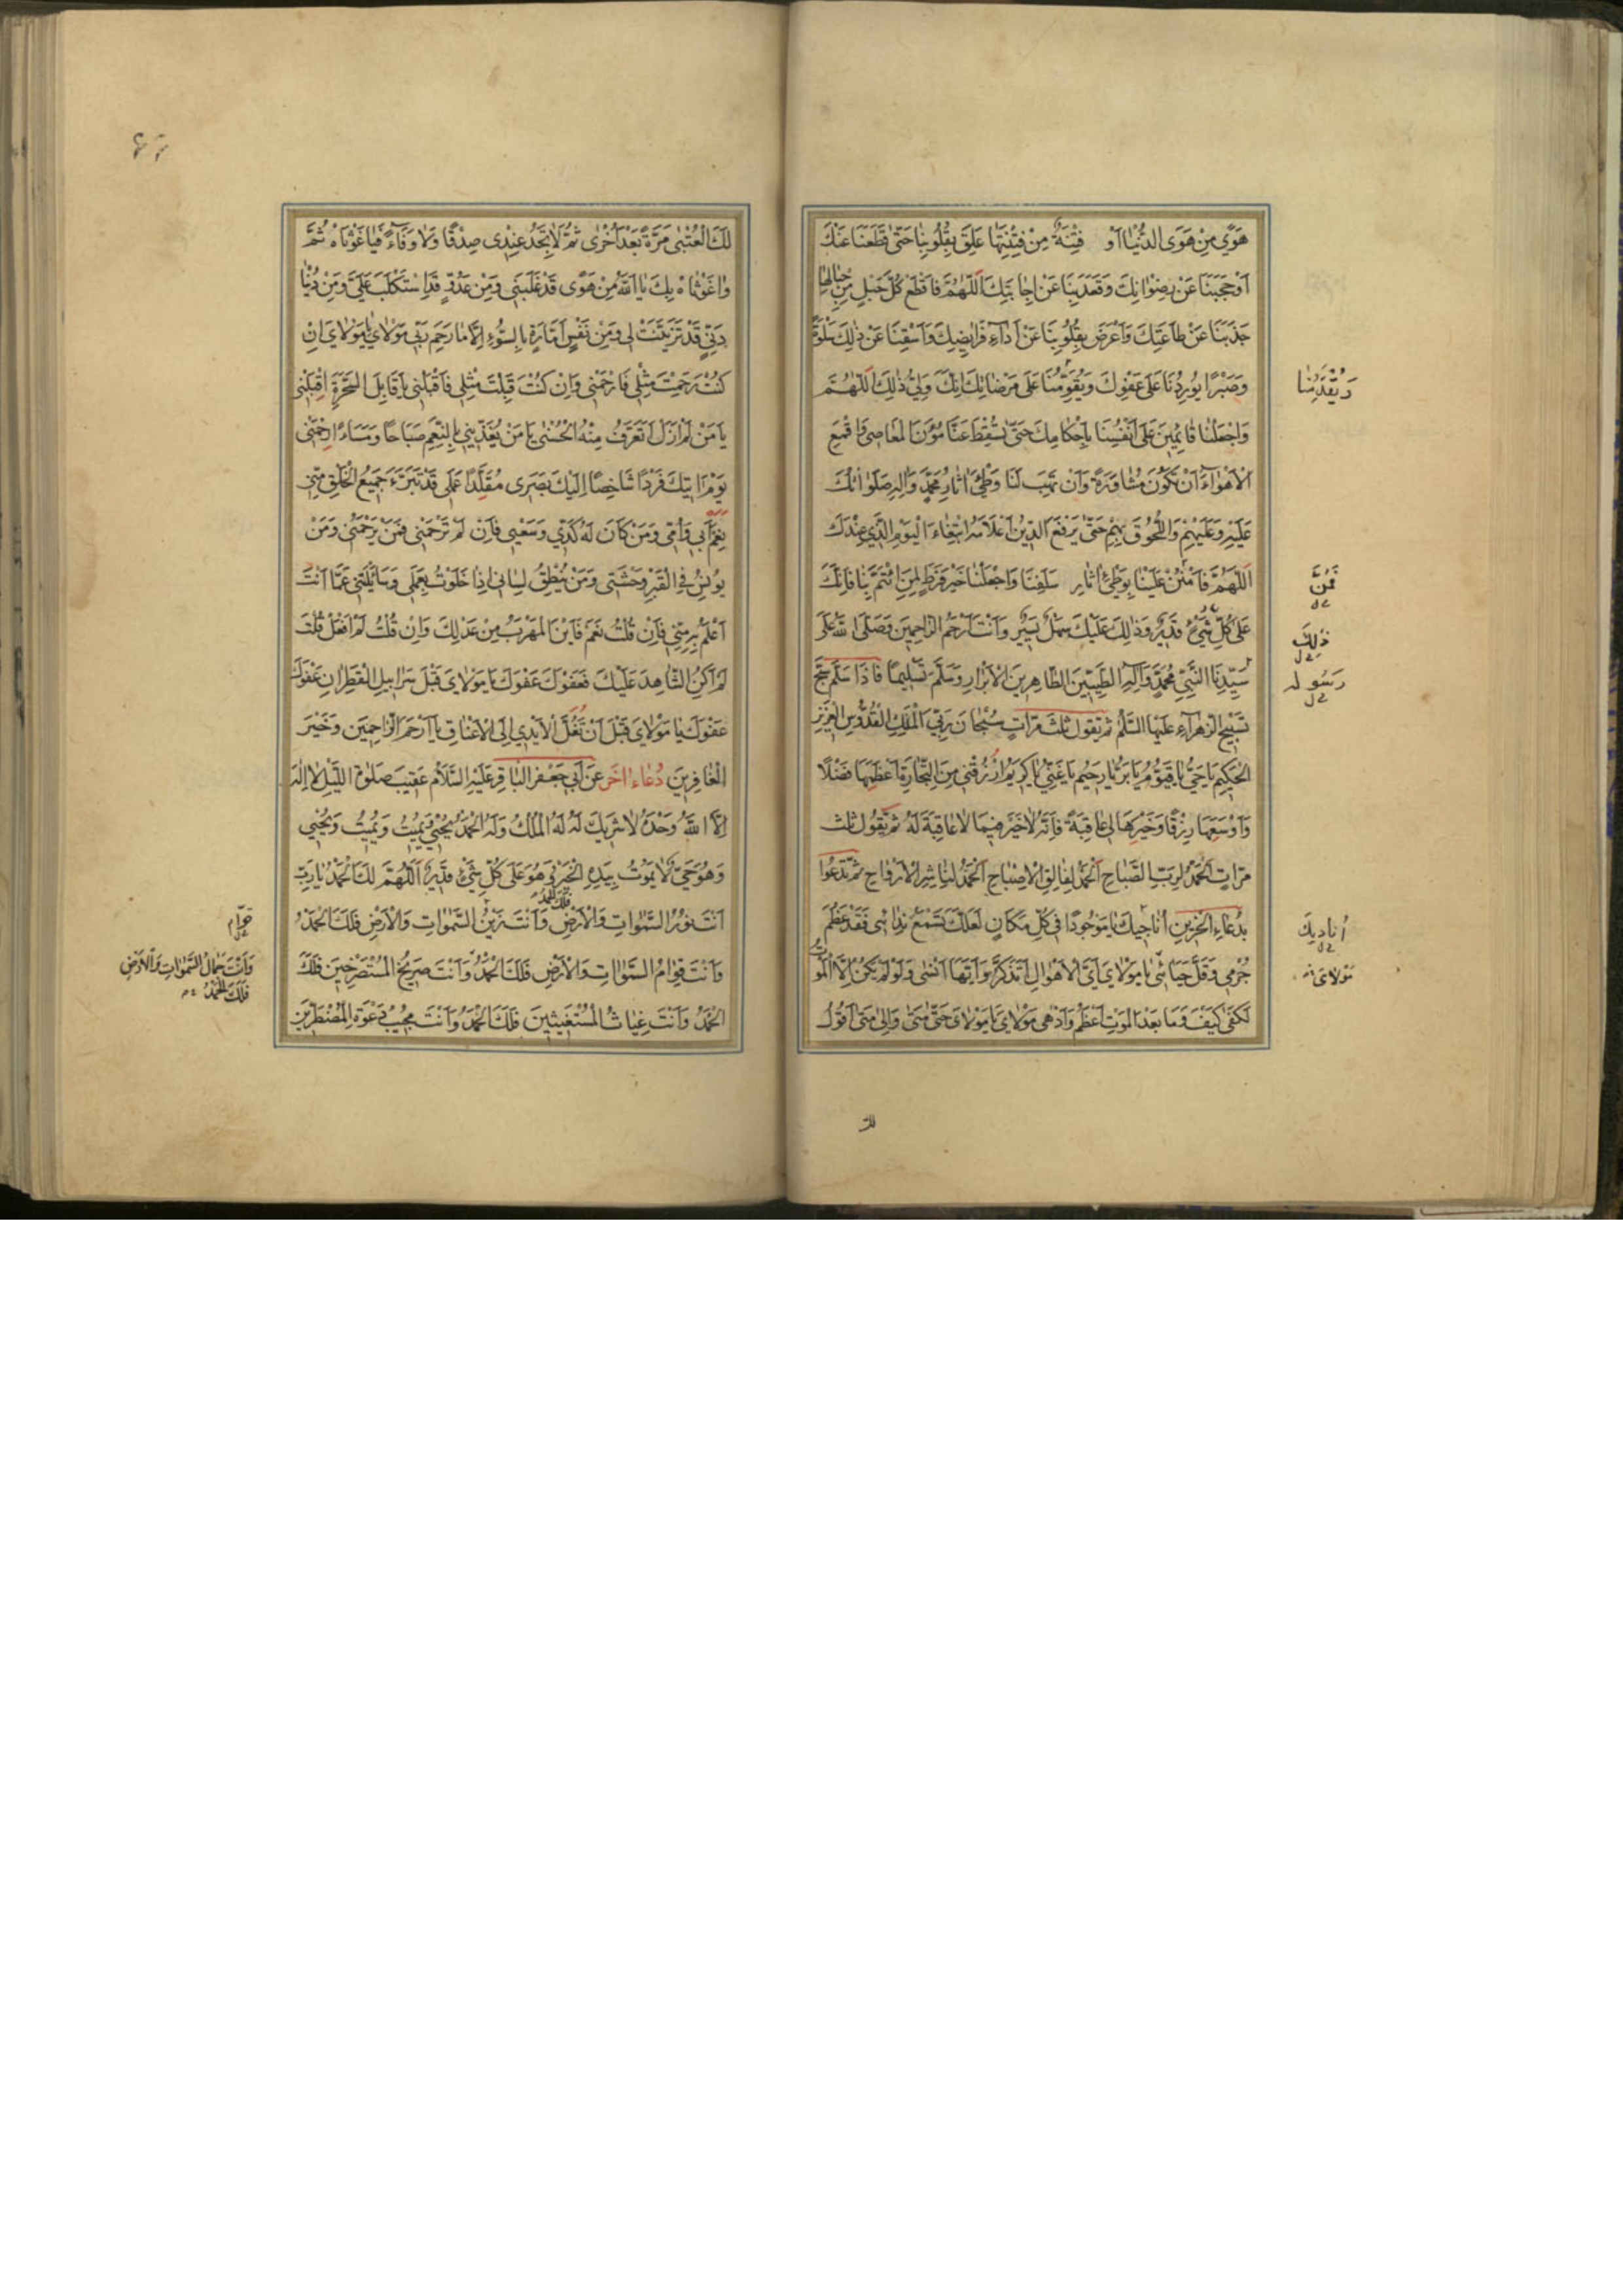 هَوًى مِنْ هَوَى الدُّنْيَا أَوْ فِتْنَةٌ مِنْ فِتْنَتِهَا عَلِقَ بِقُلُوبِنَا حَتَّى قَطَعَنَا عَنْكَ
أَوْ حَجَبَنَا عَنْ رِضْوَانِكَ وَقَعَدَ بِنَا عَنْ إِجَابَتِكَ اللّٰهُمَّ فَاقْطَعْ كُلَّ حَبْلٍ مِنْ حِبَالِهَا
جَذَبَنَا عَنْ طَاعَتِكَ وَأَعْرَضَ بِقُلُوبِنَا عَنْ أَدَاءِ فَرَائِضِكَ وَاسْقِنَا عَنْ ذٰلِكَ سَلْوَةً
وَصَبْرًا يُورِدُنَا عَلَى عَفْوِكَ وَيُقَوِّمُنَا عَلَى مَرْضَاتِكَ إِنَّكَ وَلِيُّ ذٰلِكَ اللّٰهُمَّ
وَيُقْدِمُنَا
وَاجْعَلْنَا قَائِمِينَ عَلَى أَنْفُسِنَا بِأَحْكَامِكَ حَتَّى تُسْقِطَ عَنَّا مُؤَنَ الْمَعَاصِي وَاقْمَعِ
الْأَهْوَاءَ أَنْ تَكُونَ مُشَاوَرَةً وَأَنْ تَهَبَ لَنَا وَطْىَ آثَارِ مُحَمَّدٍ وَآلِهِ صَلَوَاتُكَ
عَلَيْهِ وَعَلَيْهِمْ وَاللُّحُوقَ بِهِمْ حَتَّى يَرْفَعَ الدِّينُ أَعْلَامَهُ ابْتِغَاءَ الْيَوْمِ الَّذِي عِنْدَكَ
اللّٰهُمَّ فَامْنُنْ عَلَيْنَا بِوَطْىِ آثَارِ سَلَفِنَا وَاجْعَلْنَا خَيْرَ فَرَطٍ لِمَنِ ائْتَمَّ بِنَا فَإِنَّكَ
فَمُنَّ
عَلَى كُلِّ شَيْءٍ قَدِيرٌ وَذٰلِكَ عَلَيْكَ سَهْلٌ يَسِيرٌ وَأَنْتَ أَرْحَمُ الرَّاحِمِينَ وَصَلَّى اللّٰهُ عَلَى
ذٰلِكَ
سَيِّدِنَا النَّبِيِّ مُحَمَّدٍ وَآلِهِ الطَّيِّبِينَ الطَّاهِرِينَ الْأَبْرَارِ وَسَلَّمَ تَسْلِيمًا فَإِذَا سَلَّمَ سَبَّحَ
رَسُولِهِ
تَسْبِيحَ الزَّهْرَاءِ عَلَيْهَا السَّلَامُ ثُمَّ يَقُولُ ثَلٰثَ مَرَّاتٍ سُبْحَانَ رَبِّيَ الْمَلِكِ الْقُدُّوسِ الْعَزِيزِ
الْحَكِيمِ يَا حَيُّ يَا قَيُّومُ يَا بَرُّ يَا رَحِيمُ يَا غَنِيُّ يَا كَرِيمُ ارْزُقْنِي مِنَ التِّجَارَةِ أَعْظَمَهَا فَضْلًا
وَأَوْسَعَهَا رِزْقًا وَخَيْرَهَا لِي عَاقِبَةً فَإِنَّهُ لَا خَيْرَ فِيمَا لَا عَاقِبَةَ لَهُ ثُمَّ يَقُولُ ثَلٰثَ
مَرَّاتٍ الْحَمْدُ لِرَبِّ الصَّبَاحِ الْحَمْدُ لِفَالِقِ الْإِصْبَاحِ الْحَمْدُ لِنَاشِرِ الْأَرْوَاحِ ثُمَّ تَدْعُوا
بِدُعَاءِ الْحَزِينِ أُنَاجِيكَ يَا مَوْجُودًا فِي كُلِّ مَكَانٍ لَعَلَّكَ تَسْمَعُ نِدَائِي فَقَدْ عَظُمَ
أُنَادِيكَ
جُرْمِي وَقَلَّ حَيَائِي يَا مَوْلَايَ أَيَّ الْأَهْوَالِ أَتَذَكَّرُ وَأَيَّهَا أَنْسَى وَلَوْ لَمْ يَكُنْ إِلَّا الْمَوْتُ
مَوْلَايَ
لَكَفَى كَيْفَ وَمَا بَعْدَ الْمَوْتِ أَعْظَمُ وَأَدْهَى مَوْلَايَ يَا مَوْلَايَ حَتَّى مَتَى وَإِلَى مَتَى أَقُولُ
لك
لَكَ الْعُتْبَى مَرَّةً بَعْدَ أُخْرَى ثُمَّ لَا تَجِدُ عِنْدِي صِدْقًا وَلَا وَفَاءً فَيَا غَوْثَاهُ ثُمَّ
وَاغَوْثَاهُ بِكَ يَا اللّٰهُ مِنْ هَوًى قَدْ غَلَبَنِي وَمِنْ عَدُوٍّ قَدِ اسْتَكْلَبَ عَلَيَّ وَمِنْ دُنْيَا
دَنِيَّةٍ قَدْ تَزَيَّنَتْ لِي وَمِنْ نَفْسٍ أَمَّارَةٍ بِالسُّوءِ إِلَّا مَا رَحِمَ رَبِّي مَوْلَايَ يَا مَوْلَايَ إِنْ
كُنْتَ رَحِمْتَ مِثْلِي فَارْحَمْنِي وَإِنْ كُنْتَ قَبِلْتَ مِثْلِي فَاقْبَلْنِي يَا قَابِلَ السَّحَرَةِ اقْبَلْنِي
يَا مَنْ لَمْ أَزَلْ أَتَعَرَّفُ مِنْهُ الْحُسْنَى يَا مَنْ يُغَذِّينِي بِالنِّعَمِ صَبَاحًا وَمَسَاءً ارْحَمْنِي
يَوْمَ آتِيكَ فَرْدًا شَاخِصًا إِلَيْكَ بَصَرِي مُقَلَّدًا عَمَلِي قَدْ تَبَرَّءَ جَمِيعُ الْخَلْقِ مِنِّي
نَعَمْ أَبِي وَأُمِّي وَمَنْ كَانَ لَهُ كَدِّي وَسَعْيِي فَإِنْ لَمْ تَرْحَمْنِي فَمَنْ يَرْحَمُنِي وَمَنْ
يُونِسُ فِي الْقَبْرِ وَحْشَتِي وَمَنْ يُنْطِقُ لِسَانِي إِذَا خَلَوْتُ بِعَمَلِي وَسَائَلْتَنِي عَمَّا أَنْتَ
أَعْلَمُ بِهِ مِنِّي فَإِنْ قُلْتُ نَعَمْ فَأَيْنَ الْمَهْرَبُ مِنْ عَدْلِكَ وَإِنْ قُلْتُ لَمْ أَفْعَلْ قُلْتَ
أَلَمْ أَكُنِ الشَّاهِدَ عَلَيْكَ فَعَفْوَكَ عَفْوَكَ يَا مَوْلَايَ قَبْلَ سَرَابِيلِ الْقَطِرَانِ عَفْوَكَ
عَفْوَكَ يَا مَوْلَايَ قَبْلَ أَنْ تُغَلَّ الْأَيْدِي إِلَى الْأَعْنَاقِ يَا أَرْحَمَ الرَّاحِمِينَ وَخَيْرَ
الْغَافِرِينَ دُعَاءٌ آخَرُ عَنْ أَبِي جَعْفَرٍ الْبَاقِرِ عَلَيْهِ السَّلَامُ عَقِيبَ صَلٰوةِ اللَّيْلِ لَا إِلٰهَ
إِلَّا اللّٰهُ وَحْدَهُ لَا شَرِيكَ لَهُ لَهُ الْمُلْكُ وَلَهُ الْحَمْدُ يُحْيِي وَيُمِيتُ وَيُمِيتُ وَيُحْيِي
وَهُوَ حَيٌّ لَا يَمُوتُ بِيَدِهِ الْخَيْرُ وَهُوَ عَلَى كُلِّ شَيْءٍ قَدِيرٌ اللّٰهُمَّ لَكَ الْحَمْدُ يَا رَبِّ
فَلَكَ الْحَمْدُ
أَنْتَ نُورُ السَّمٰوَاتِ وَالْأَرْضِ وَأَنْتَ زَيْنُ السَّمٰوَاتِ وَالْأَرْضِ فَلَكَ الْحَمْدُ
قَوَّام
وَأَنْتَ قِوَامُ السَّمٰوَاتِ وَالْأَرْضِ فَلَكَ الْحَمْدُ وَأَنْتَ صَرِيخُ الْمُسْتَصْرِخِينَ فَلَكَ
وَأَنْتَ جَمَالُ السَّمٰوَاتِ وَالْأَرْضِ
فَلَكَ الْحَمْدُ
الْحَمْدُ وَأَنْتَ غِيَاثُ الْمُسْتَغِيثِينَ فَلَكَ الْحَمْدُ وَأَنْتَ مُجِيبُ دَعْوَةِ الْمُضْطَرِّينَ